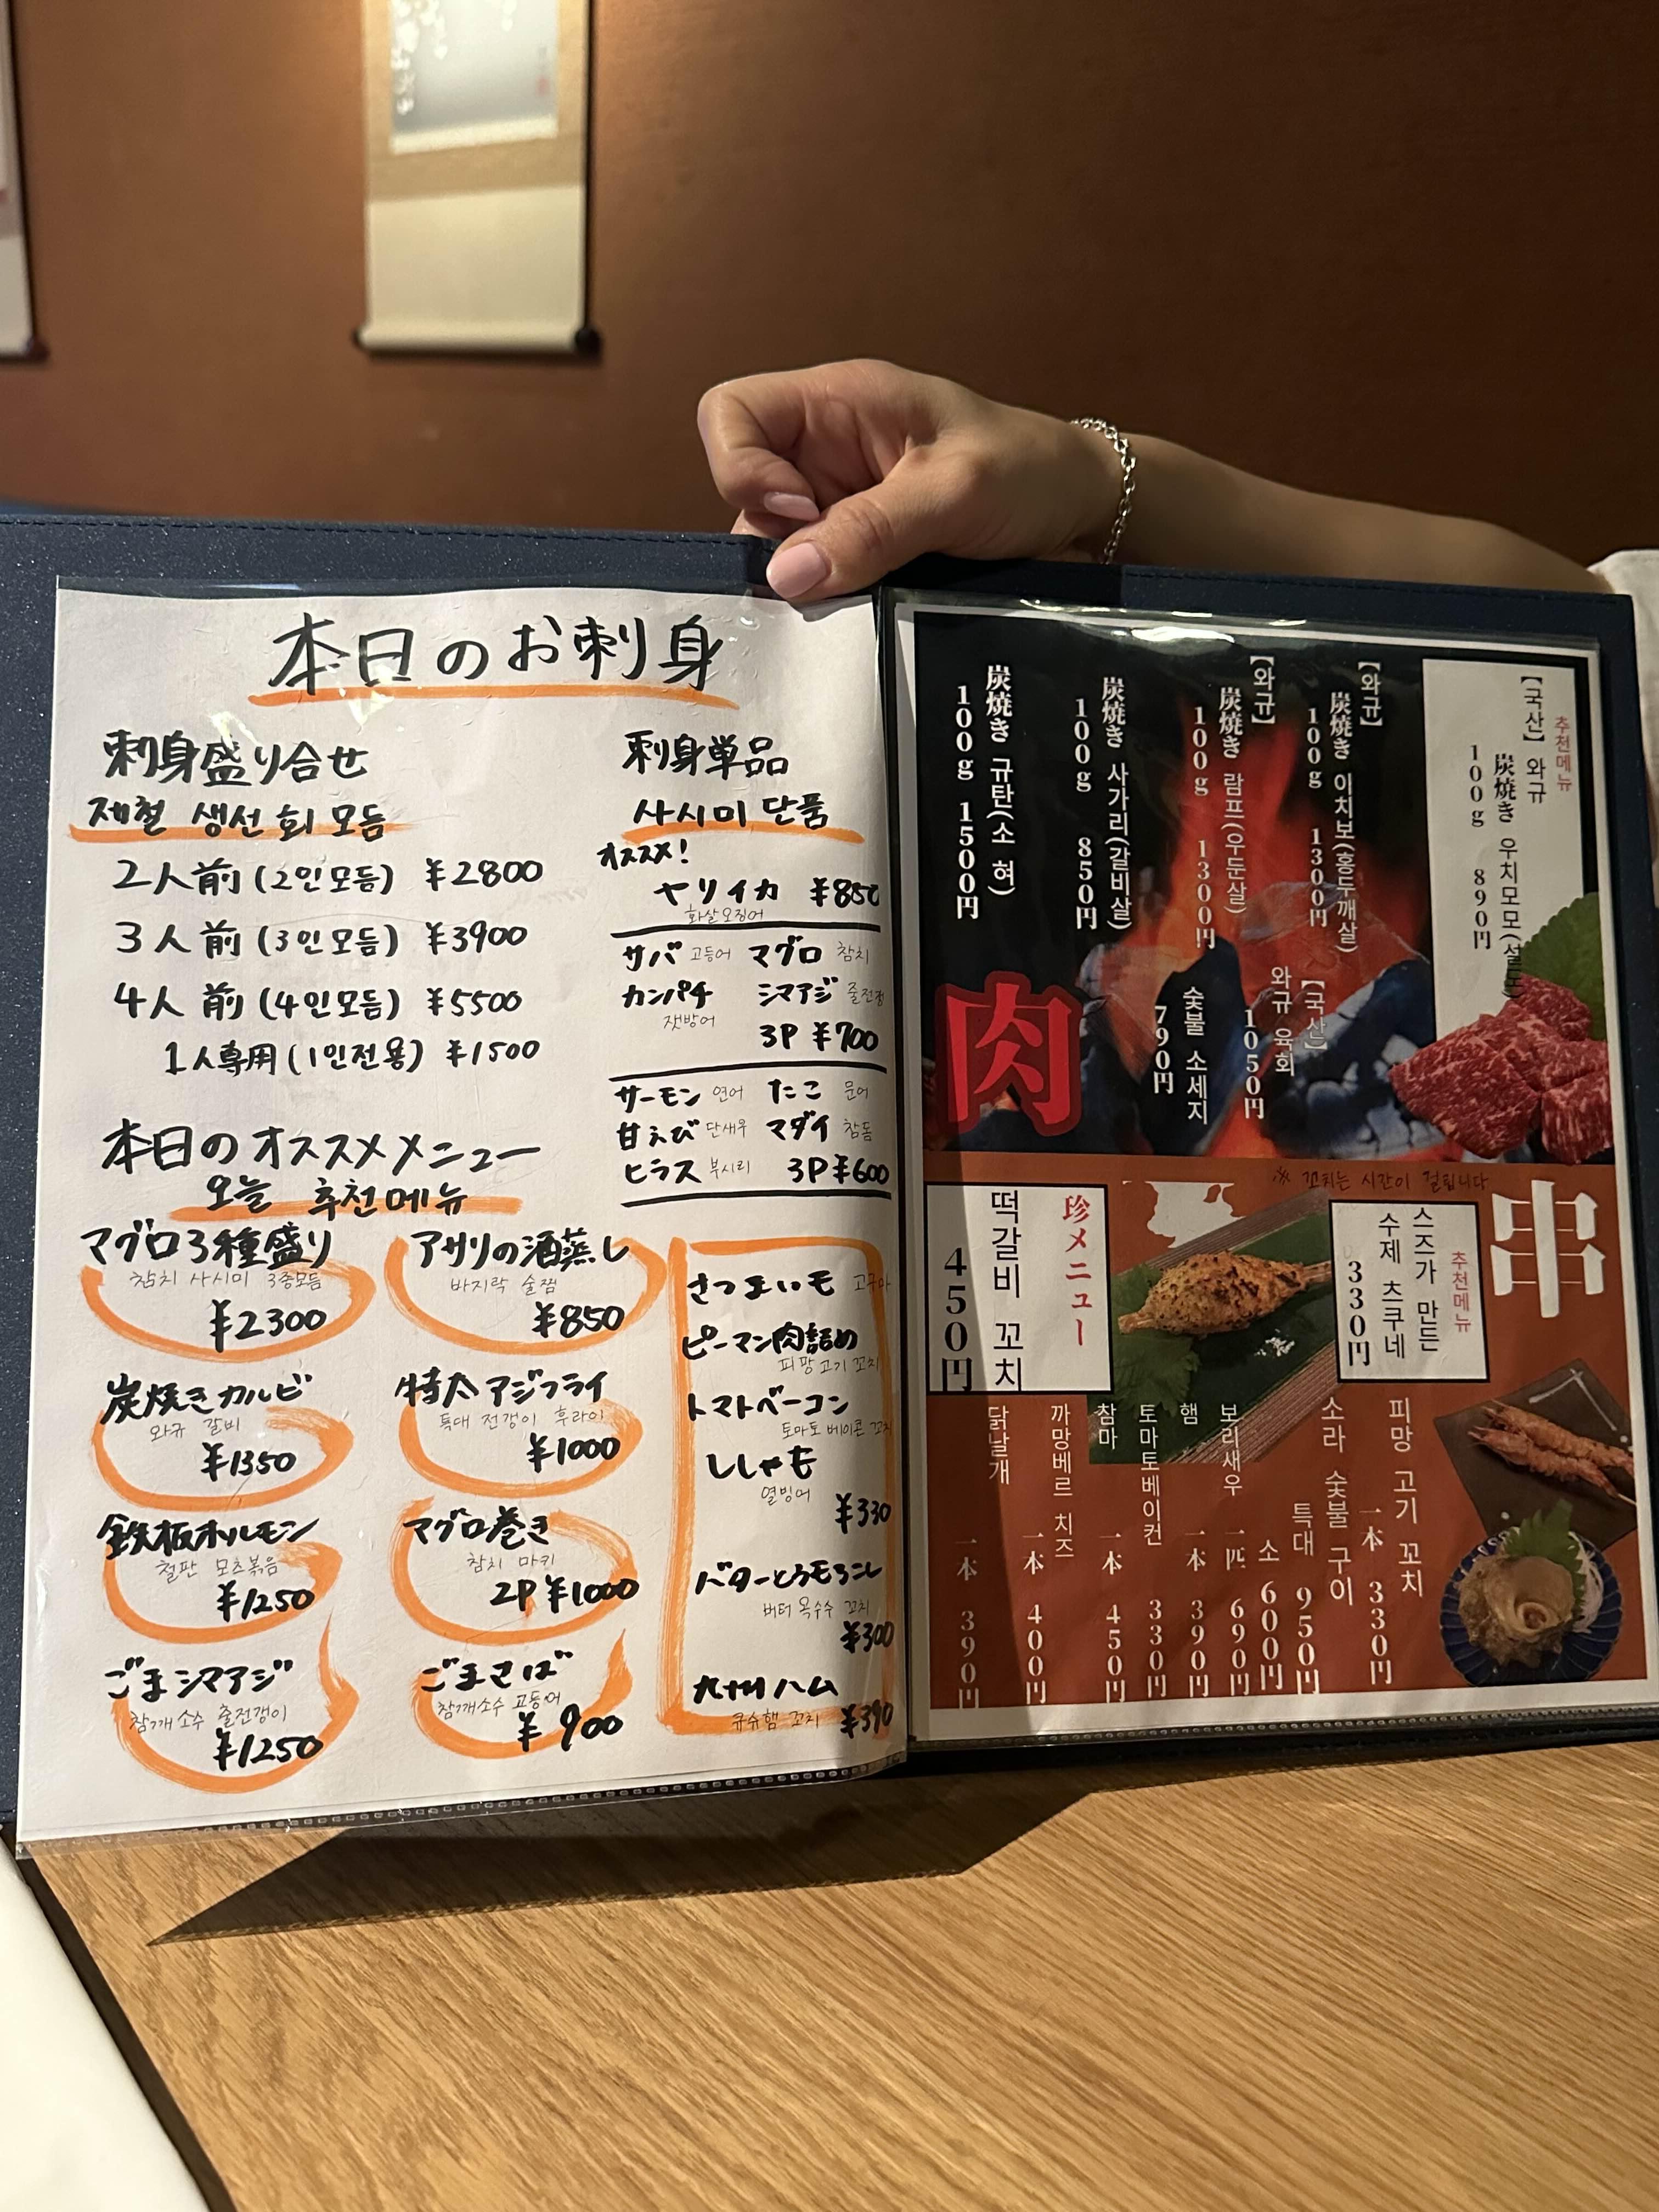 本日のお刺身
刺身盛り合せ
제철 생선 회 모듬
2人前 (2인모듬) ¥2800
3人前 (3인모듬) ¥3900
4人前 (4인모듬) ¥5500
1人専用 (1인전용) ¥1500
刺身単品
사시미 단품
オススメ!
ヤリイカ ¥850
화살오징어
サバ 고등어 マグロ 참치
カンパチ シマアジ 줄전갱
잿방어
3P ¥700
サーモン 연어 たこ 문어
甘えび 단새우 マダイ 참돔
ヒラス 부시리 3P ¥600
本日のオススメメニュー
오늘 추천메뉴
マグロ3種盛り
참치 사시미 3종모듬
¥2300
アサリの酒蒸し
바지락 술찜
¥850
炭焼きカルビ
와규 갈비
¥1350
特大アジフライ
특대 전갱이 후라이
¥1000
鉄板ホルモン
철판 모츠볶음
¥1250
マグロ巻き
참치 마키
2P ¥1000
ごまシマアジ
참깨소수 줄전갱이
¥1250
ごまさば
참깨소수 고등어
¥900
さつまいも 고구마
ピーマン肉詰め
피망고기 꼬치
トマトベーコン
토마토 베이콘 꼬치
ししゃも
열빙어
¥330
バターとうもろこし
버터 옥수수 꼬치
¥300
九州ハム
큐슈햄 꼬치 ¥390
추천메뉴
【국산】 와규
炭焼き 우치모모(설도)
100g 890円
【와규】
炭焼き 이치보(홍두깨살)
100g 1300円
【와규】
炭焼き 람프(우둔살)
100g 1300円
炭焼き 사가리(갈비살)
100g 850円
炭焼き 규탄(소 혀)
100g 1500円
【국산】
와규 육회
1050円
숯불 소세지
790円
肉
※ 꼬치는 시간이 걸립니다
串
추천메뉴
스즈가 만든
수제 츠쿠네
330円
珍メニュー
떡갈비 꼬치
450円
피망 고기 꼬치
一本 330円
소라 숯불구이
특대 950円
소 600円
보리새우 一匹 690円
햄 一本 390円
토마토베이컨 330円
참마 一本 450円
까망베르 치즈 一本 400円
닭날개 一本 390円